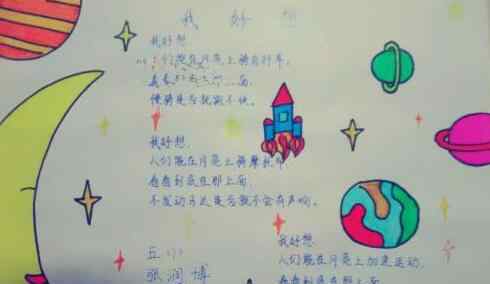 我好想
我好想
们能在月亮上骑自行车，
看看
慢骑是否就骑不快。
我好想，
人们能在月亮上骑摩托车
看看到底在那上面，
不发动马达是否就不会有声响。
我好想
人们能在月亮上加速运动，
看看到底在那上面
五（1）
张润博